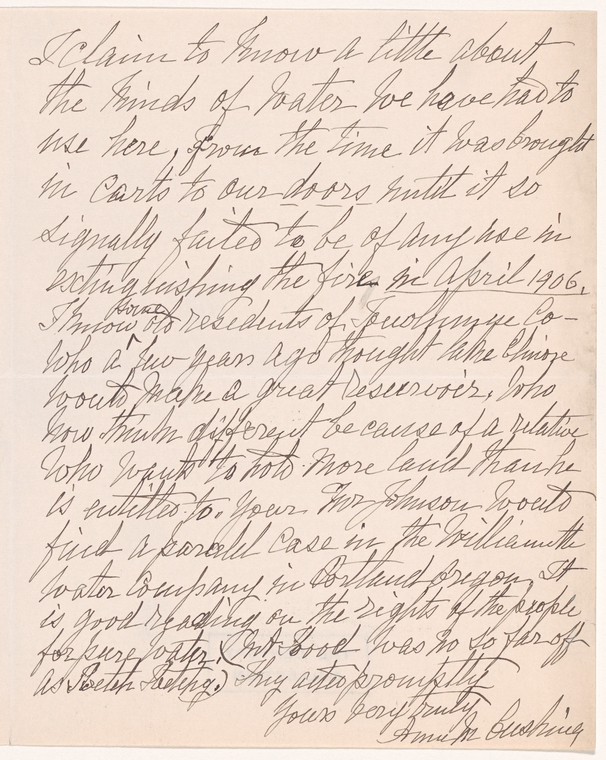 I claim to know a little about
the kinds of water we have had to
use here, from the time it was brought
in carts to our doors until it so
signally failed to be of any use in
extinguishing the fire in April 1906.
I know some old residents of Tuolumne Co-
who a few years ago thought lake
would make a great reservoir, who
now think different because of a relative
who wants to hold more land than he
is entitled to. Your Mr Johnson would
find a parcell case in the Williamette
water company in Portland Oregon, It
is good reading on the rights of the people
for pure water. (Mt Hood was no so far off
as Hetch Hetchy.) They acted promptly
Yours very truly
M Cushing